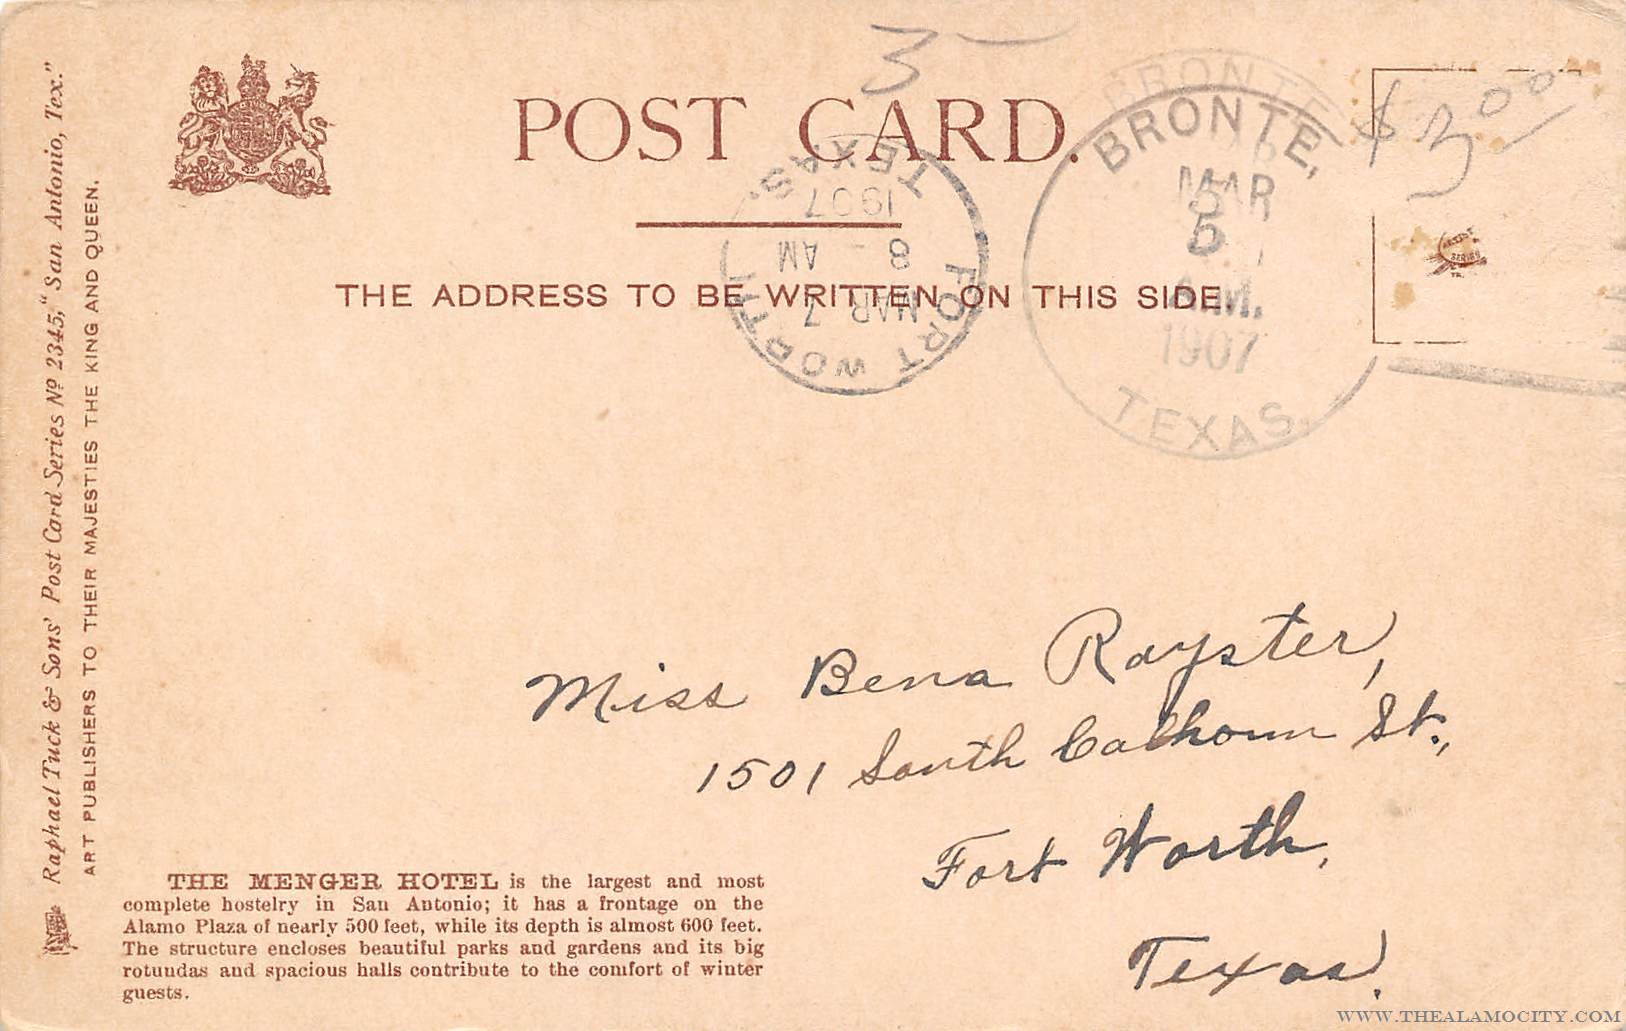 Raphael Tuck & Sons' Post Card Series Nº 2345, "San Antonio, Tex."
ART PUBLISHERS TO THEIR MAJESTIES THE KING AND QUEEN.
POST CARD.
THE ADDRESS TO BE WRITTEN ON THIS SIDE.
3
TEXAS.
1907
8 - AM
MAR 7
FORT WORTH
BRONTE
BRONTE,
MAR
5
5
A.M.
1907
TEXAS.
$ 3.00
ARTIST
SERIES
Miss Bena Royster,
1501 South Calhoun St.,
Fort Worth,
Texas.
THE MENGER HOTEL is the largest and most
complete hostelry in San Antonio; it has a frontage on the
Alamo Plaza of nearly 500 feet, while its depth is almost 600 feet.
The structure encloses beautiful parks and gardens and its big
rotundas and spacious halls contribute to the comfort of winter
guests.
WWW.THEALAMOCITY.COM